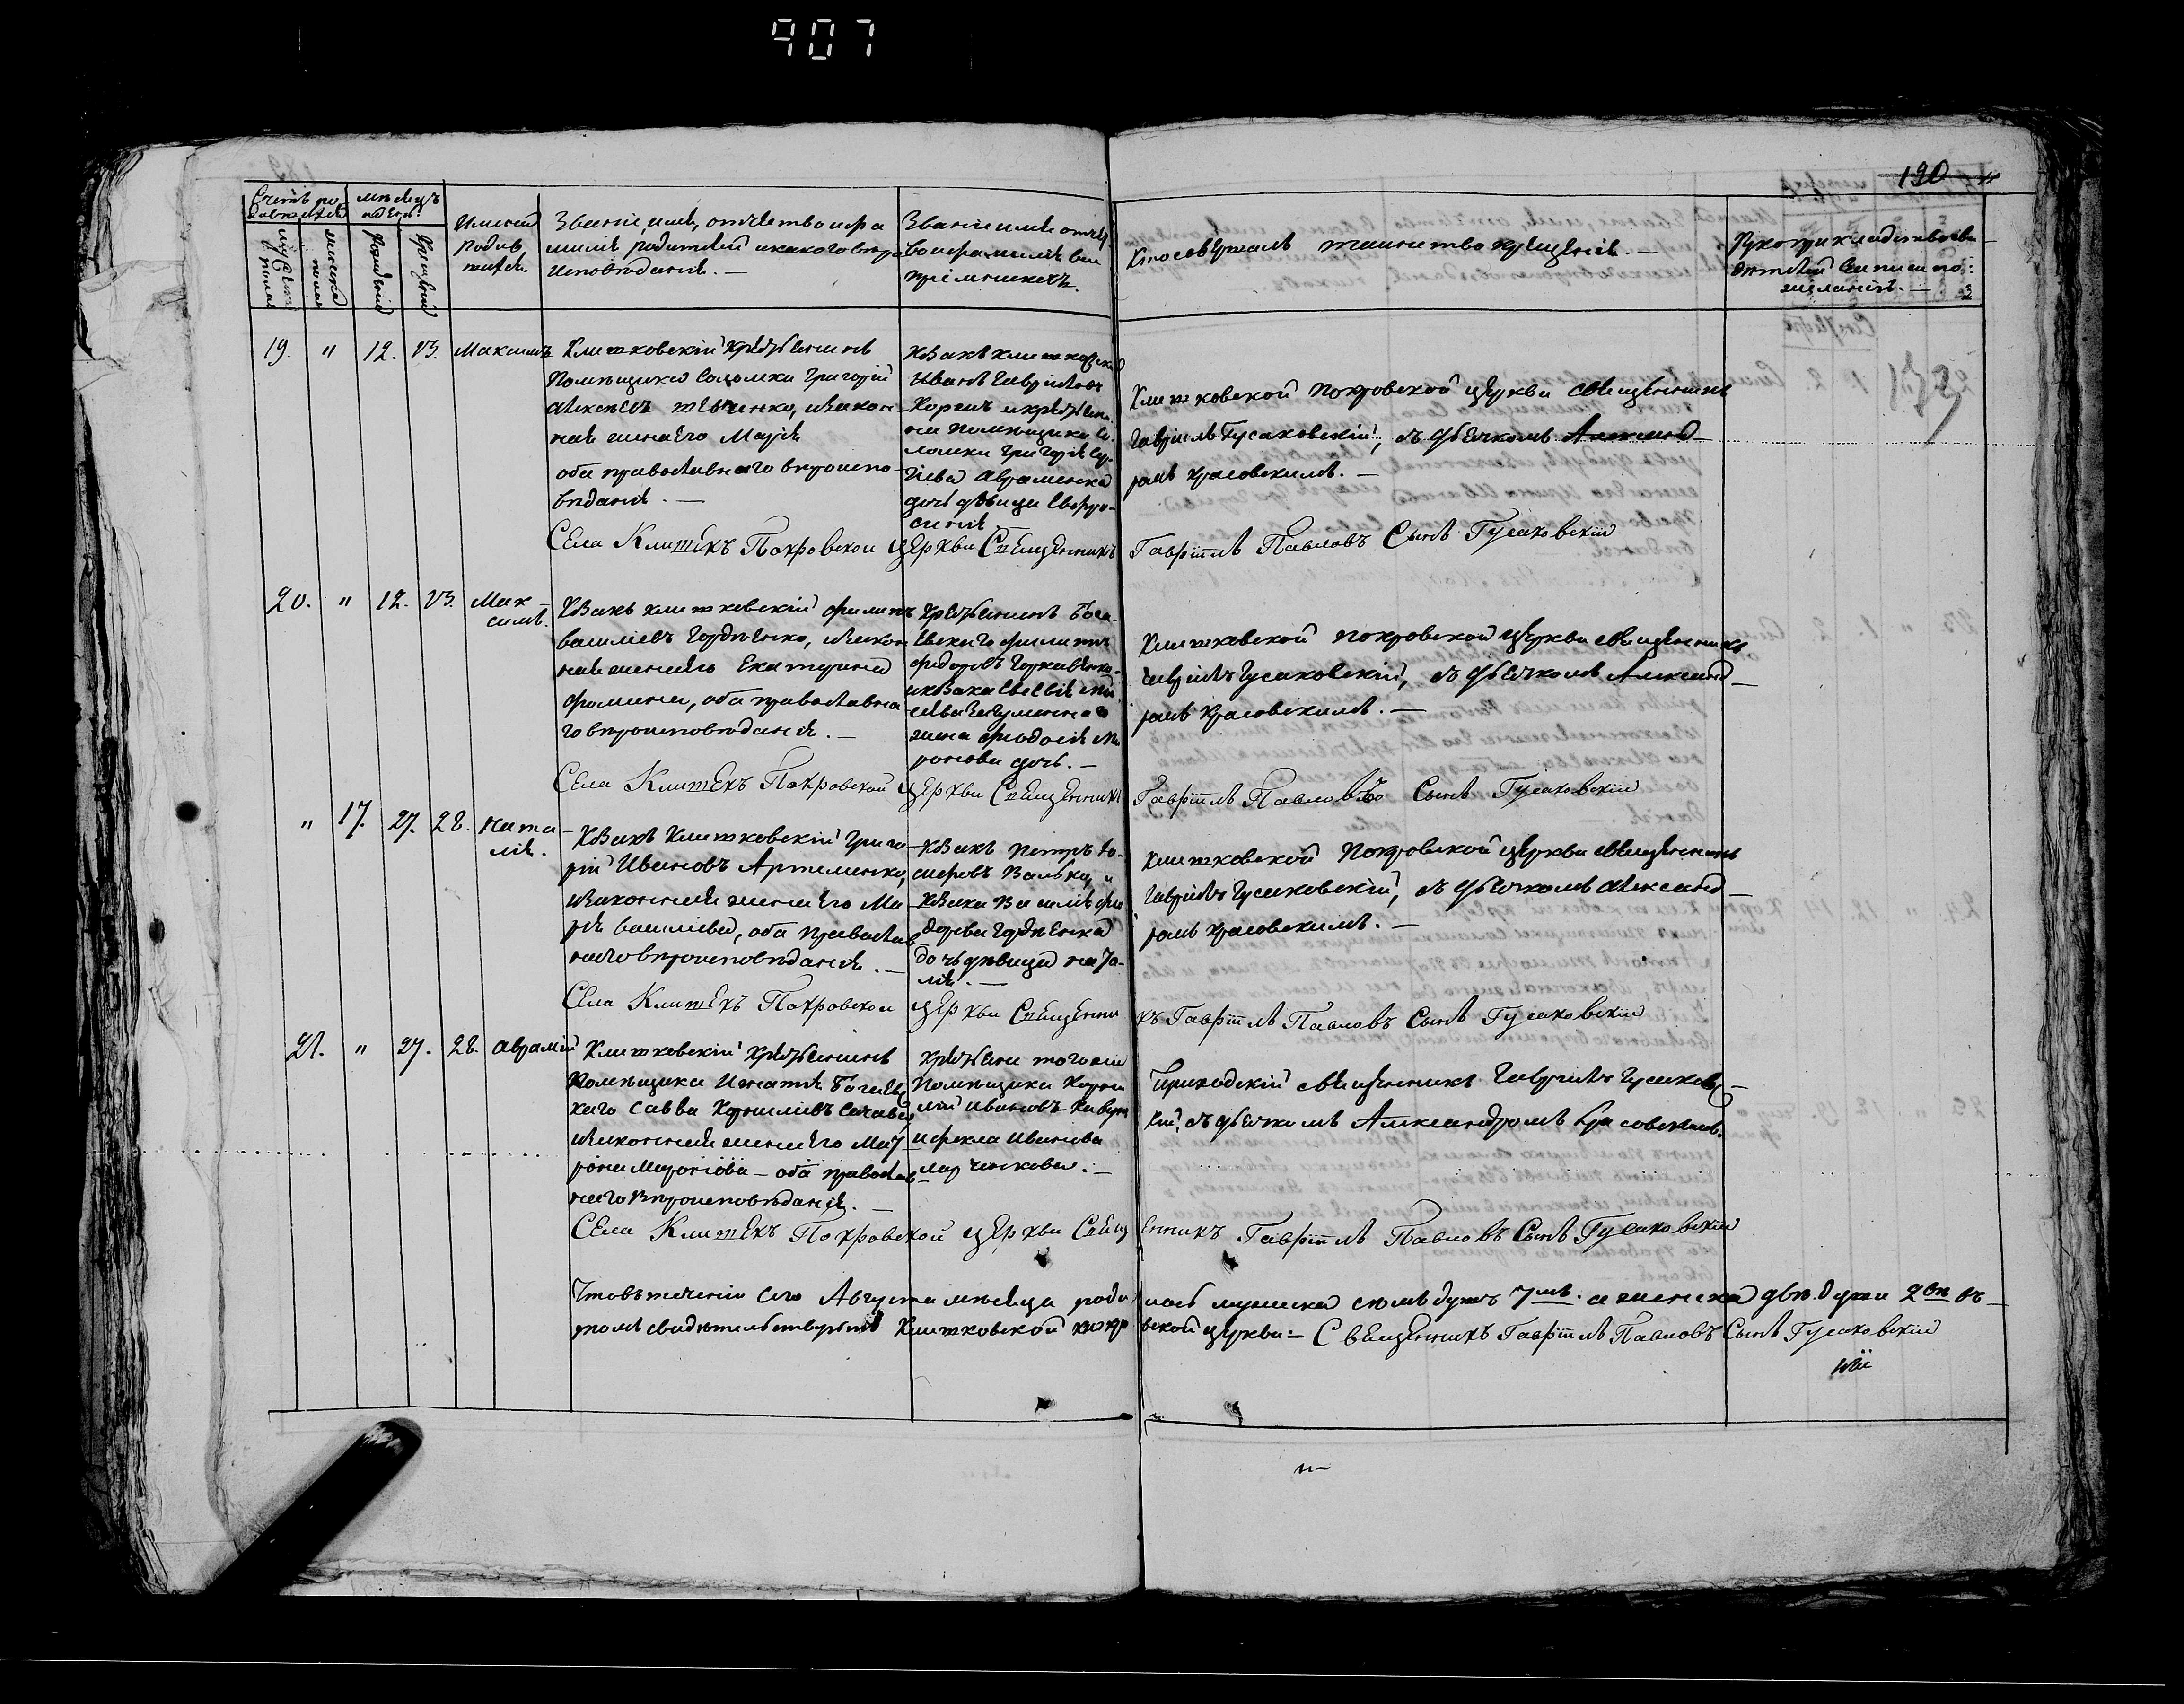 907
190
Счетъ родившихся
мужеска пола
женска пола
мѣсяцъ и день
рожденія
крещенія
Имена родившихся.
Званіе, имя, отчество и фамилія родителей и какого вѣроисповѣданія. —
Званіе имя отчество и фамилія воспріемниковъ.
Кто совершалъ таинство крещенія. —
Рукоприкладство свидѣтелей записи по желанію. —
19. " 12. 13. Максимъ
Клишковскій крестьянинъ
помѣщика Соломки Григорій
Алексѣевъ Шевченко, и закон-
ная жена его Марія
оба православнаго вѣроиспо-
вѣданія. —
Козакъ клишковскій
Иванъ Гавріиловъ
Коржъ и крестьяни-
на помѣщика Со-
ломки Григорія Сер-
гіева Авраменка
дочь дѣвица Евфро-
синія
Клишковской Покровской церкви священникъ
Гавріилъ Гусаковскій, съ дьячкомъ Александ-
ромъ Красовскимъ. —
Села Клишекъ Покровской церкви Священникъ Гавріилъ Павловъ Сынъ Гусаковскій
20. " 12. 13. Мак-
симъ.
Козакъ клишковскій Филипъ
Васильевъ Гордѣенко, и закон
ная жена его Екатерина
Фомина, оба православна
го вѣроисповѣданія. —
Крестьянинъ Бога-
евскаго Филипъ
Федоровъ
и козака Евсевія
жена Феодосія Ми
ронова дочь. —
Клишковской Покровской церкви священникъ
Гавріилъ Гусаковскій, съ дьячкомъ Александ-
ромъ Красовскимъ. —
Села Клишекъ Покровской церкви Священникъ Гавріилъ Павловъ Сынъ Гусаковскій
" 17. 27. 28. Ната-
лія.
Козакъ Клишковскій Григо-
рій Ивановъ Артеменко,
и законная жена его Ма-
рія Васильева, оба православ
наго вѣроисповѣданія. —
Козакъ Петръ Іо-
сифовъ Валько, и
Козака Василія Фе
дорова Гордѣенка
дочь дѣвица Ната-
лія. —
Клишковской Покровской церкви священникъ
Гавріилъ Гусаковскій, съ дьячкомъ Александ-
ромъ Красовскимъ. —
Села Клишекъ Покровской церкви Священникъ Гавріилъ Павловъ Сынъ Гусаковскій
21. " 27. 28. Аврамій
Клишковскій крестьянинъ
помѣщика Игнатія Богаевс
каго Савва Корниліевъ
и законная жена его Мат-
рона Миронова — оба православ
наго вѣроисповѣданія. —
Крестьяне того же
помѣщика Корни
лій Ивановъ
и Фекла Иванова
Марченкова. —
Приходскій священникъ Гавріилъ Гусаковс-
кій, съ дьячкомъ Александромъ Красовскимъ.
Села Клишекъ Покровской церкви Священникъ Гавріилъ Павловъ Сынъ Гусаковскій
Что въ теченіи сего Августа мѣсяца родилось мужеска семь душъ 7мь. а женска двѣ души 2вѣ въ
томъ свидѣтельствуетъ Клишковской Покровской церкви: — Священникъ Гавріилъ Павловъ Сынъ Гусаковскій